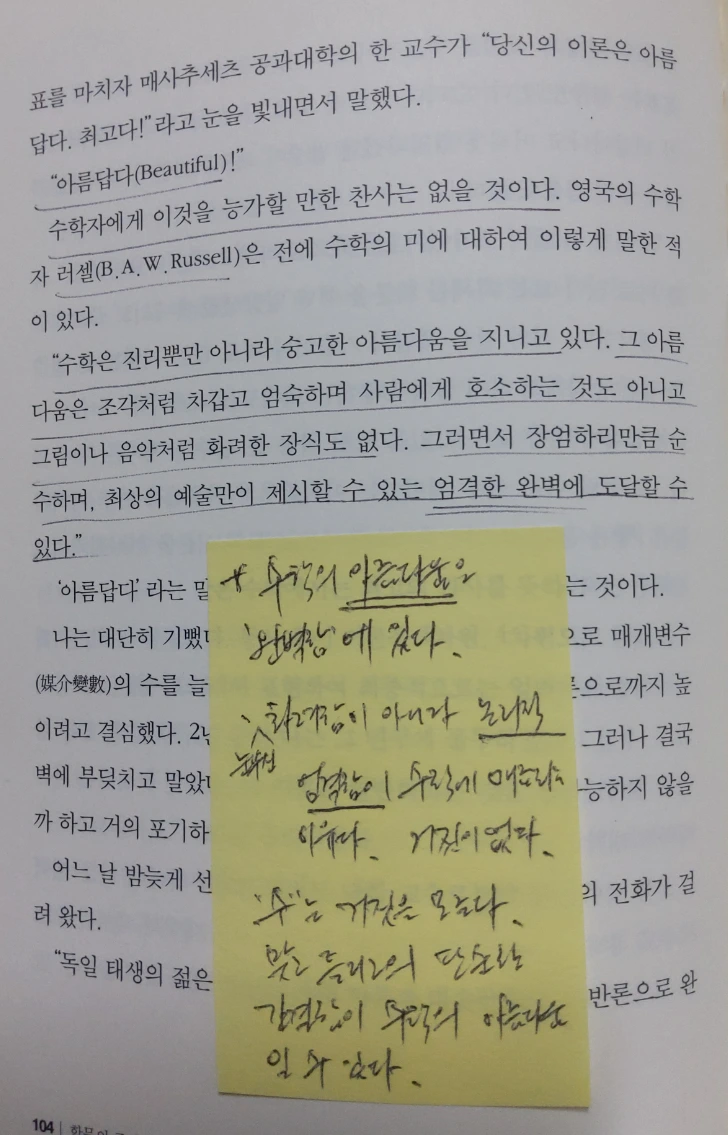 표를 마치자 매사추세츠 공과대학의 한 교수가 “당신의 이론은 아름
답다. 최고다!”라고 눈을 빛내면서 말했다.
“아름답다(Beautiful)!”
수학자에게 이것을 능가할 만한 찬사는 없을 것이다. 영국의 수학
자 러셀(B.A.W. Russell)은 전에 수학의 미에 대하여 이렇게 말한 적
이 있다.
“수학은 진리뿐만 아니라 숭고한 아름다움을 지니고 있다. 그 아름
다움은 조각처럼 차갑고 엄숙하며 사람에게 호소하는 것도 아니고
그림이나 음악처럼 화려한 장식도 없다. 그러면서 장엄하리만큼 순
수하며, 최상의 예술만이 제시할 수 있는 엄격한 완벽에 도달할 수
있다.”
‘아름답다’라는 말 는 것이다.
나는 대단히 기뻤 으로 매개변수
(媒介變數)의 수를 늘 으로까지 높
이려고 결심했다. 2년 그러나 결국
벽에 부딪치고 말았 능하지 않을
까 하고 거의 포기하
어느 날 밤늦게 선 의 전화가 걸
려 왔다.
“독일 태생의 젊은 반론으로 완
104
* 수학의 아름다움은
'완벽함'에 있다.
화려함이 아니라 논리적
엄격함이 수학에 매료되는
이유다. 거짓이 없다.
"수"는 거짓을 모른다.
맞고 틀리고의 단순한
간결함이 수학의 아름다움
일 수 있다.